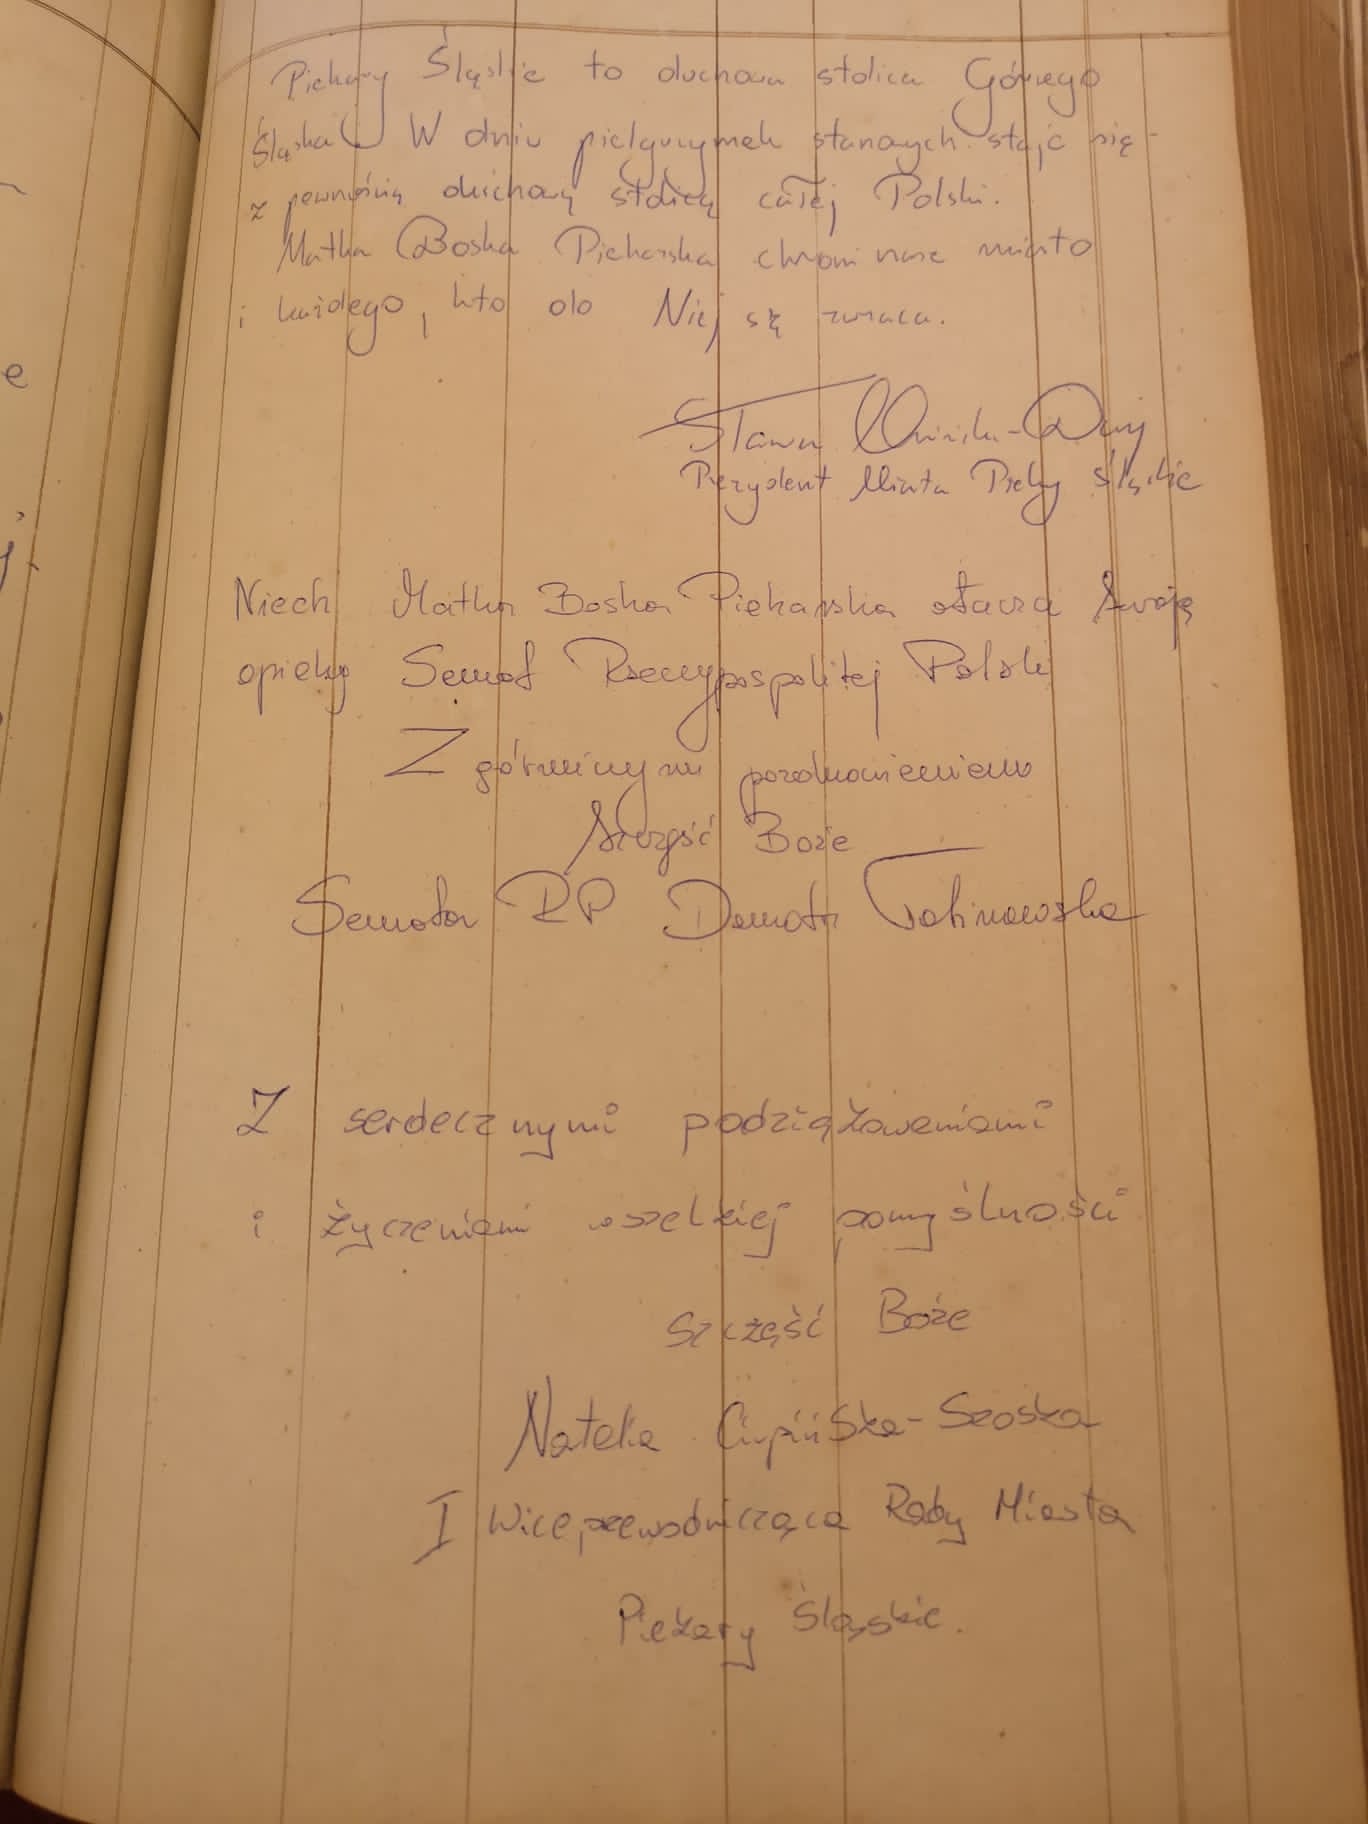 Piekary Śląskie to duchowa stolica Górnego
Śląska. W dniu pielgrzymek stanowych staje się
z pewnością duchową stolicą całej Polski.
Matka Boska Piekarska chroni nasze miasto
i każdego, kto do Niej się zwraca.
Sława Umińska-Duraj
Prezydent Miasta Piekary Śląskie
Niech Matka Boska Piekarska otacza swoją
opieką Senat Rzeczypospolitej Polski
Z górniczym pozdrowieniem
Szczęść Boże
Senator RP Dorota Tobiszowska
Z serdecznymi podziękowaniami
i życzeniami wszelkiej pomyślności
Szczęść Boże
Natalia Ciupińska-Szoska
I Wiceprzewodnicząca Rady Miasta
Piekary Śląskie.